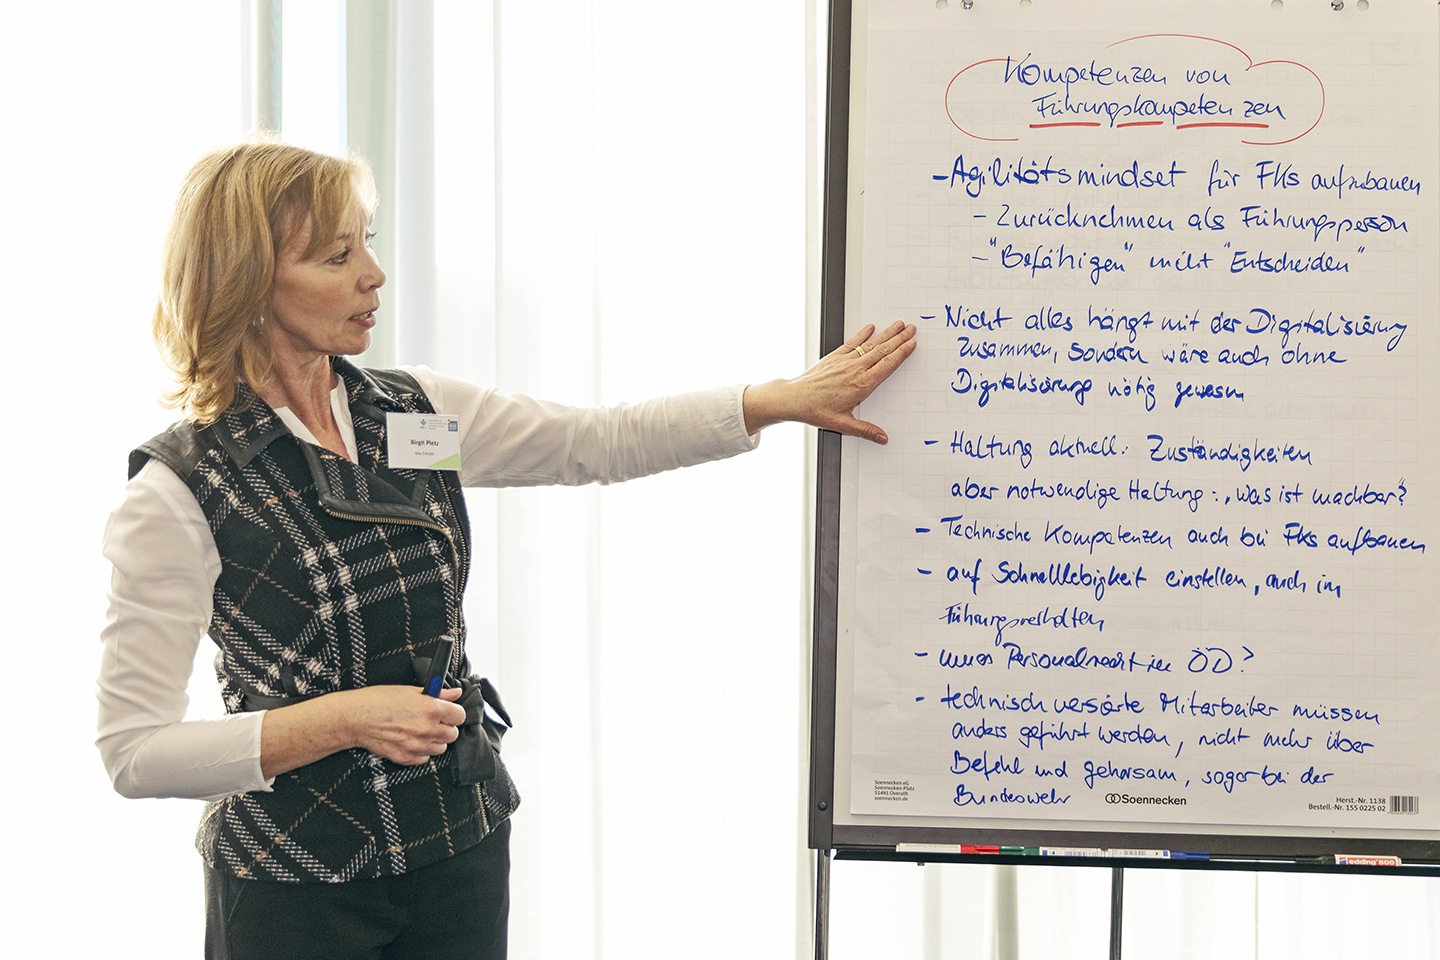 Kompetenzen von
Führungskompetenzen
- Agilitätsmindset für FKs aufzubauen
- Zurücknehmen als Führungsperson
- "Befähigen" nicht "Entscheiden"
- Nicht alles hängt mit der Digitalisierung
zusammen, sondern wäre auch ohne
Digitalisierung nötig gewesen
- Haltung aktuell: Zuständigkeiten
aber notwendige Haltung: "was ist machbar?"
- Technische Kompetenzen auch bei FKs aufbauen
- auf Schnelllebigkeit einstellen, auch im
Führungsverhalten
- neues Personalrecht im ÖD?
- technisch versierte Mitarbeiter müssen
anders geführt werden, nicht mehr über
Befehl und gehorsam, sogar bei der
Bundeswehr
Soennecken eG
Soennecken Platz
51491 Overath
soennecken.de
Soennecken
Herst.-Nr. 1138
Bestell.-Nr. 155 0225 02
edding 500
Birgit Pletz